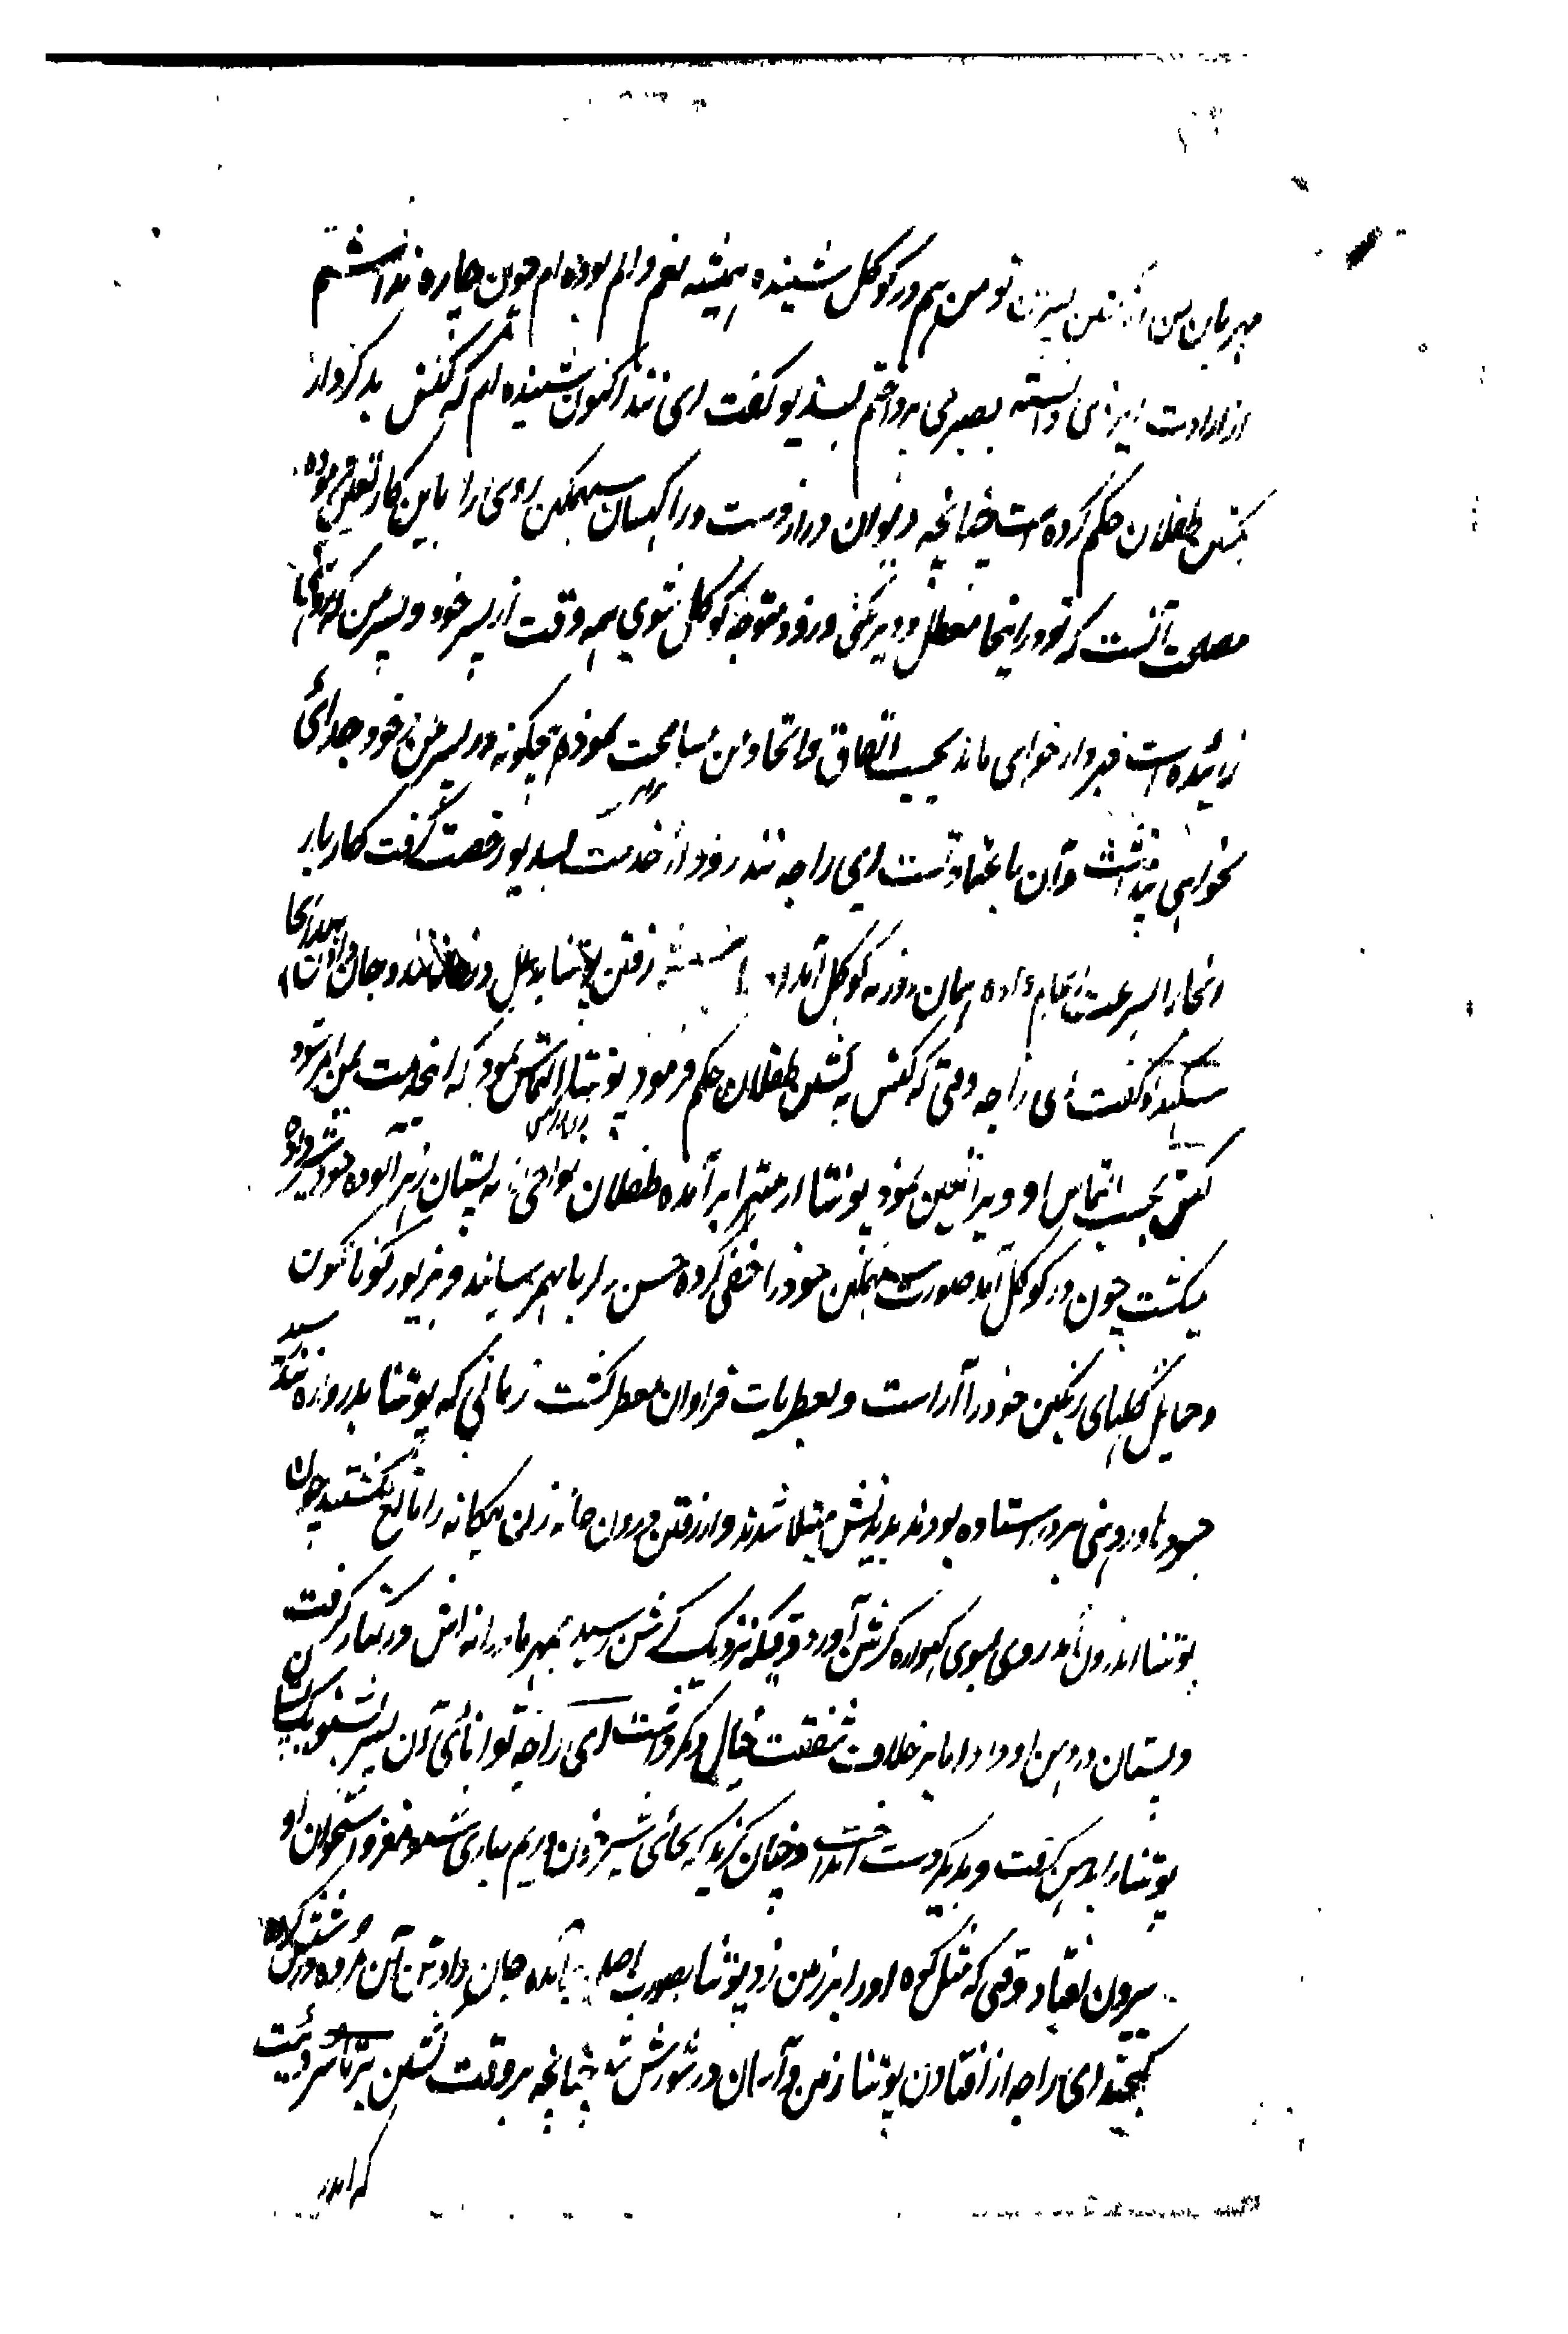 مهربان من از کشتن پسران تو من هم در گوکل شنیده همیشه بغم و الم بوده ام چون چاره نداشتم
از ارادت ایزدی دانسته بصبر می پرداختم بسدیو گفت ای نند اکنون شنیده ام که کنس بد کردار
بکشتن طفلان حکم کرده است چنانچه دیوان دراز دست و راکسان سهمگین روی را باین کار تعین فرموده
مصلحت آنست که تو در اینجا معطل و دیر نکنی و زود متوجه گوکل شوی همه وقت از پسر خود و پسر من که
زائیده است خبردار خواهی ماند بحسب اتفاق و اتحاد من مبالغت نموده ام چگونه در پسر من و خود جدائی
نخواهی پنداشت و آن باعتماد تست ای راجه نند زود از خدمت بسدیو رخصت گرفت کاربار
انجا را بسرعت انجام داده همان روز به گوکل آمد رفتن پوتنا به گوکل و جان دادن
سکدیو گفت ای راجه وقتی که کنس به کشتن طفلان حکم فرمود پوتنا التماس نمود که اینخدمت بمن امر شود
کنس بحسب التماس او ویرا تعین نمود پوتنا از متهرا برآمده طفلان نواحی را به پستان زهر آلوده خود شیر داده
میکشت چون در گوکل آمد صورت سهمگین خود را مخفی کرده حسن دلربا بهم رسانید و بزیور گوناگون
و حمایل گلهای رنگین خود را آراست و بعطریات فراوان معطر گشت زمانی که پوتنا بدروازه نند رسید
جسودا و روهنی بر در استاده بودند بدیدنش مبتلا شدند و از رفتن درون خانه زن بیگانه را مانع نگشتند چون
پوتنا اندرون آمد روی بسوی گهواره کرشن آورد وقتیکه نزدیک کرشن رسید بمهر مادرانه اش در کنار گرفت
و پستان در دهن او داد اما بر خلاف شفقت خیال دیگر داشت ای راجه توانائی آن پسر بشنو پستان
پوتنا را بدهن گرفت و بدیگر دست انداخت و چنان گزید که بجای شیر خون و ریم جاری شد و مغز و استخوان او
بیرون افتاد وقتی که مثل کوه او را بر زمین زد پوتنا بصورت اصلی آمده جان داد تن آن مرده
ای راجه از افتادن پوتنا زمین و آسمان در شورش شد چنانچه بر وقت کشتن برتاسر دیت
که اندر